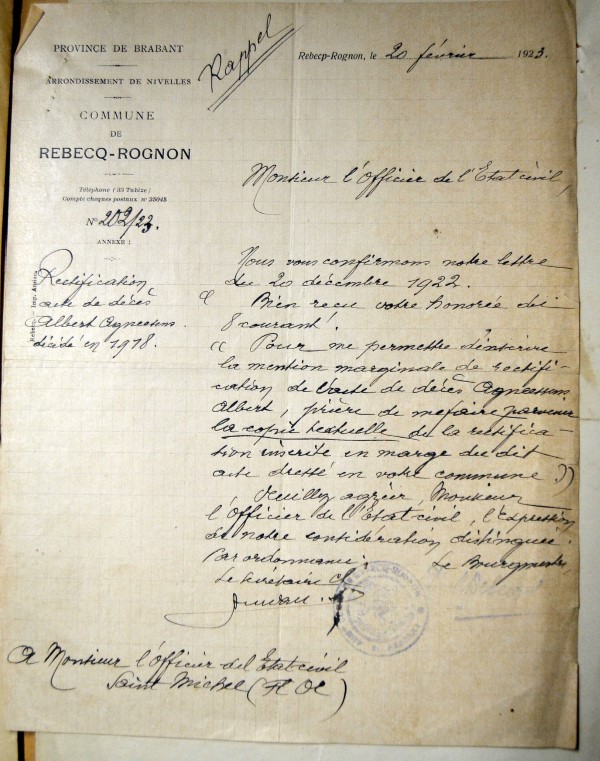 PROVINCE DE BRABANT
ARRONDISSEMENT DE NIVELLES
COMMUNE
DE
REBECQ-ROGNON
Téléphone (33 Tubize)
Compte chèques postaux nº 35048
Nº 202/23.
ANNEXE :
Rectification
acte de décès
Albert Agneesens
décédé en 1918.
Rappel
Rebecq-Rognon, le 20 février 1923.
Monsieur l'Officier de l'Etat civil,
Nous vous confirmons notre lettre
du 20 décembre 1922.
Bien reçu votre honorée du
8 courant.
(( Pour me permettre d'inscrire
la mention marginale de rectifi-
cation de l'acte de décès Agneesens
Albert, prière de me faire parvenir
la copie textuelle de la rectifica-
tion inscrite en marge du dit
acte dressé en votre commune ))
Veuillez agréer, Monsieur
l'Officier de l'Etat civil, l'expression
de notre considération distinguée.
Par ordonnance :
Le Secrétaire
Le Bourgmestre,
A Monsieur l'Officier de l'Etat civil
Saint Michel (Fl Oc)